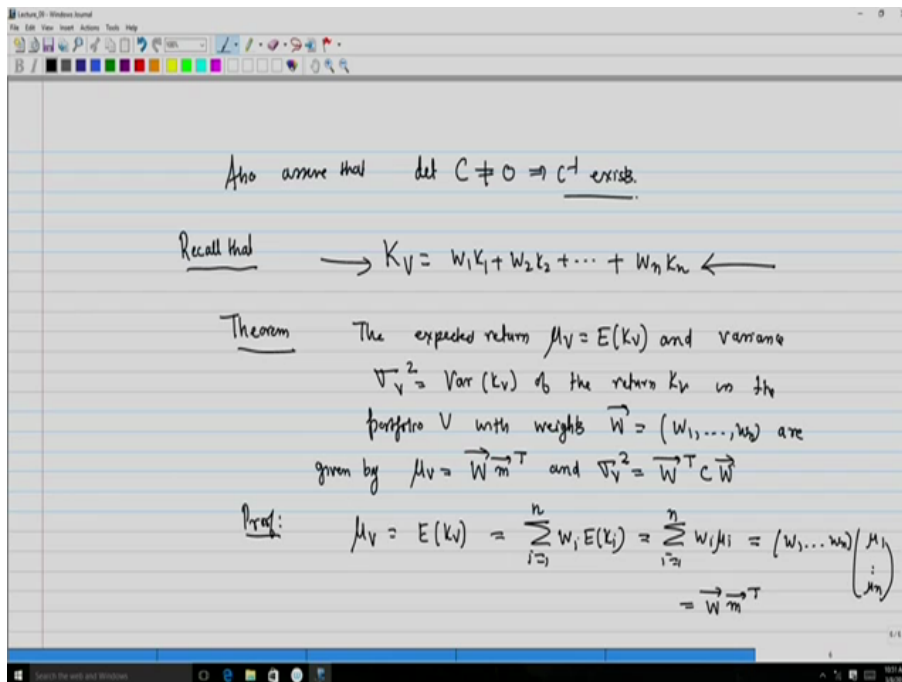 Lecture_09 - Windows Journal
File Edit View Insert Actions Tools Help
B I
Also assume that det C ≠ 0 ⇒ C⁻¹ exists.
Recall that → K_V = W₁K₁ + W₂K₂ + ··· + WₙKₙ ←
Theorem The expected return μ_V = E(K_V) and variance
σ_V² = Var(K_V) of the return K_V in the
portfolio V with weights W⃗ = (W₁, ..., wₙ) are
given by μ_V = W⃗ m⃗ᵀ and σ_V² = W⃗ᵀ C W⃗
Proof: μ_V = E(K_V) = ∑ᵢ₌₁ⁿ Wᵢ E(Kᵢ) = ∑ᵢ₌₁ⁿ Wᵢ μᵢ = (W₁ ... wₙ) (μ₁ ⋮ μₙ)
= W⃗ m⃗ᵀ
6/6
6
Search the web and Windows